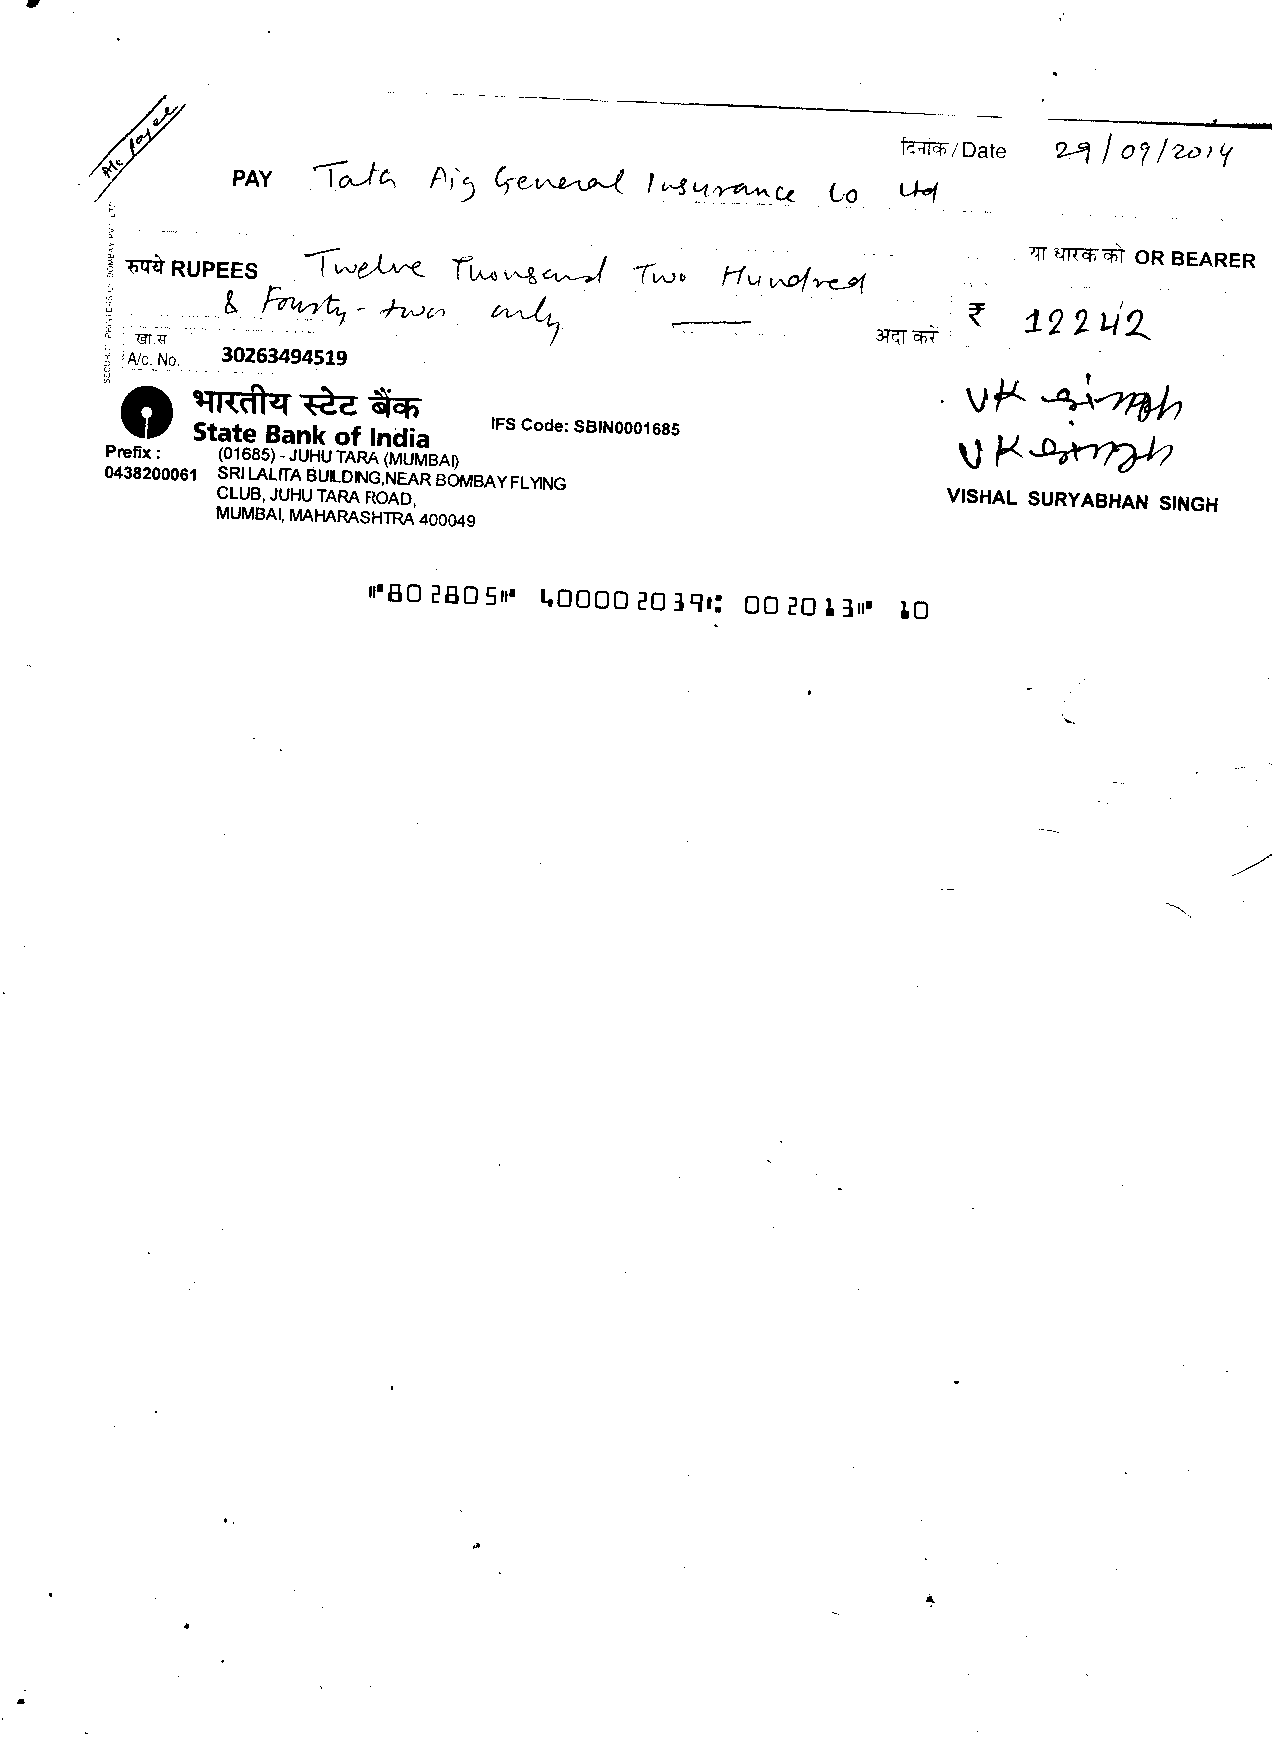 A/c payee
दिनांक / Date 29/09/2014
PAY Tata Aig General Insurance Co Ltd
या धारक को OR BEARER
रुपये RUPEES Twelve Thousand Two Hundred
& Fourty-two only
अदा करें ₹ 12242
खा.स
A/c. No. 30263494519
भारतीय स्टेट बैंक
State Bank of India
IFS Code: SBIN0001685
VK Singh
VK Singh
Prefix :
0438200061
(01685) - JUHU TARA (MUMBAI)
SRI LALITA BUILDING,NEAR BOMBAY FLYING
CLUB, JUHU TARA ROAD,
MUMBAI, MAHARASHTRA 400049
VISHAL SURYABHAN SINGH
⑈802805⑈ 400002039⑆ 002013⑈ 10